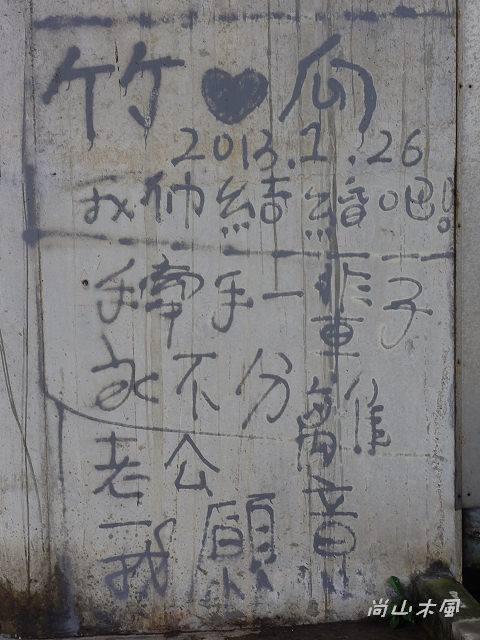 竹♥瓜
2013.1.26
我們結婚吧!!
手牽手一輩子
永不分離
老公
我願意
尚山木風